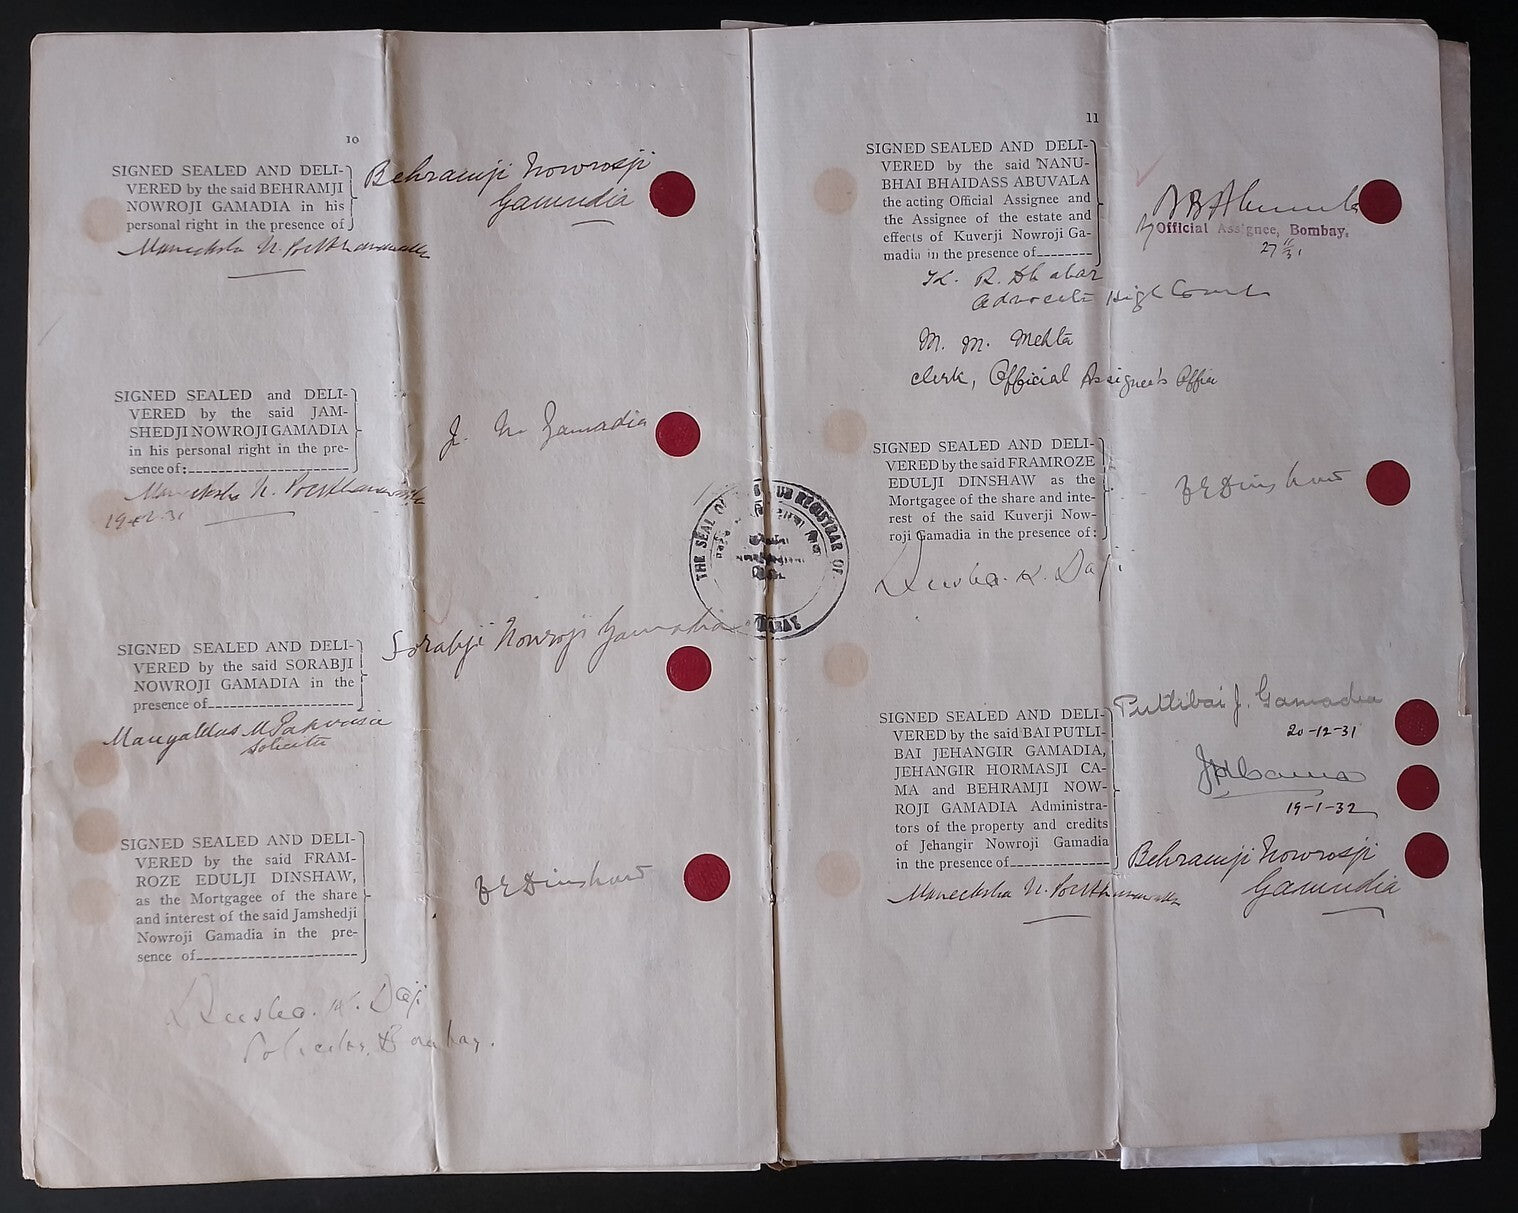 10
SIGNED SEALED AND DELI-
VERED by the said BEHRAMJI
NOWROJI GAMADIA in his
personal right in the presence of
Behramji Nowrosji
Gamadia
Maneksha N.
SIGNED SEALED and DELI-
VERED by the said JAM-
SHEDJI NOWROJI GAMADIA
in his personal right in the pre-
sence of:
J. N. Gamadia
Maneksha N.
19-12-31
SIGNED SEALED AND DELI-
VERED by the said SORABJI
NOWROJI GAMADIA in the
presence of
Sorabji Nowroji Gamadia
Mangaldas M Pakvasa
Solicitor
SIGNED SEALED AND DELI-
VERED by the said FRAM-
ROZE EDULJI DINSHAW,
as the Mortgagee of the share
and interest of the said Jamshedji
Nowroji Gamadia in the pre-
sence of
F E Dinshaw
K. Daji
Solicitor, Bombay.
THE SEAL OF SUB REGISTRAR OF
BOMBAY
11
SIGNED SEALED AND DELI-
VERED by the said NANU-
BHAI BHAIDASS ABUVALA
the acting Official Assignee and
the Assignee of the estate and
effects of Kuverji Nowroji Ga-
madia in the presence of
Official Assignee, Bombay.
27 11/31
K. R. Dhabar
Advocate High Court
M. M. Mehta
clerk, Official Assignee's Office
SIGNED SEALED AND DELI-
VERED by the said FRAMROZE
EDULJI DINSHAW as the
Mortgagee of the share and inte-
rest of the said Kuverji Now-
roji Gamadia in the presence of:
F E Dinshaw
K. Daji
SIGNED SEALED AND DELI-
VERED by the said BAI PUTLI-
BAI JEHANGIR GAMADIA,
JEHANGIR HORMASJI CA-
MA and BEHRAMJI NOW-
ROJI GAMADIA Administra-
tors of the property and credits
of Jehangir Nowroji Gamadia
in the presence of
Putlibai J. Gamadia
20-12-31
JHCama
19-1-32
Behramji Nowrosji
Gamadia
Maneksha N.